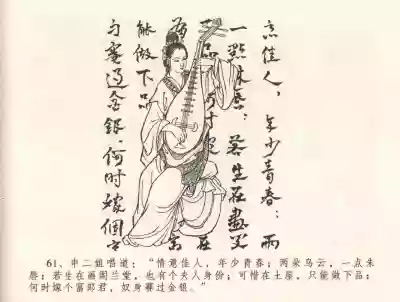 意佳人，年少青春；两
一點朱唇；若生在画
能做下品
賽過金銀。何时嫁個富
61、申二姐唱道：“情意佳人，年少青春；两朵乌云，一点朱
唇；若生在画阁兰堂，也有个夫人身份；可惜在土屋，只能做下品；
何时嫁个富郎君，奴身赛过金银。”